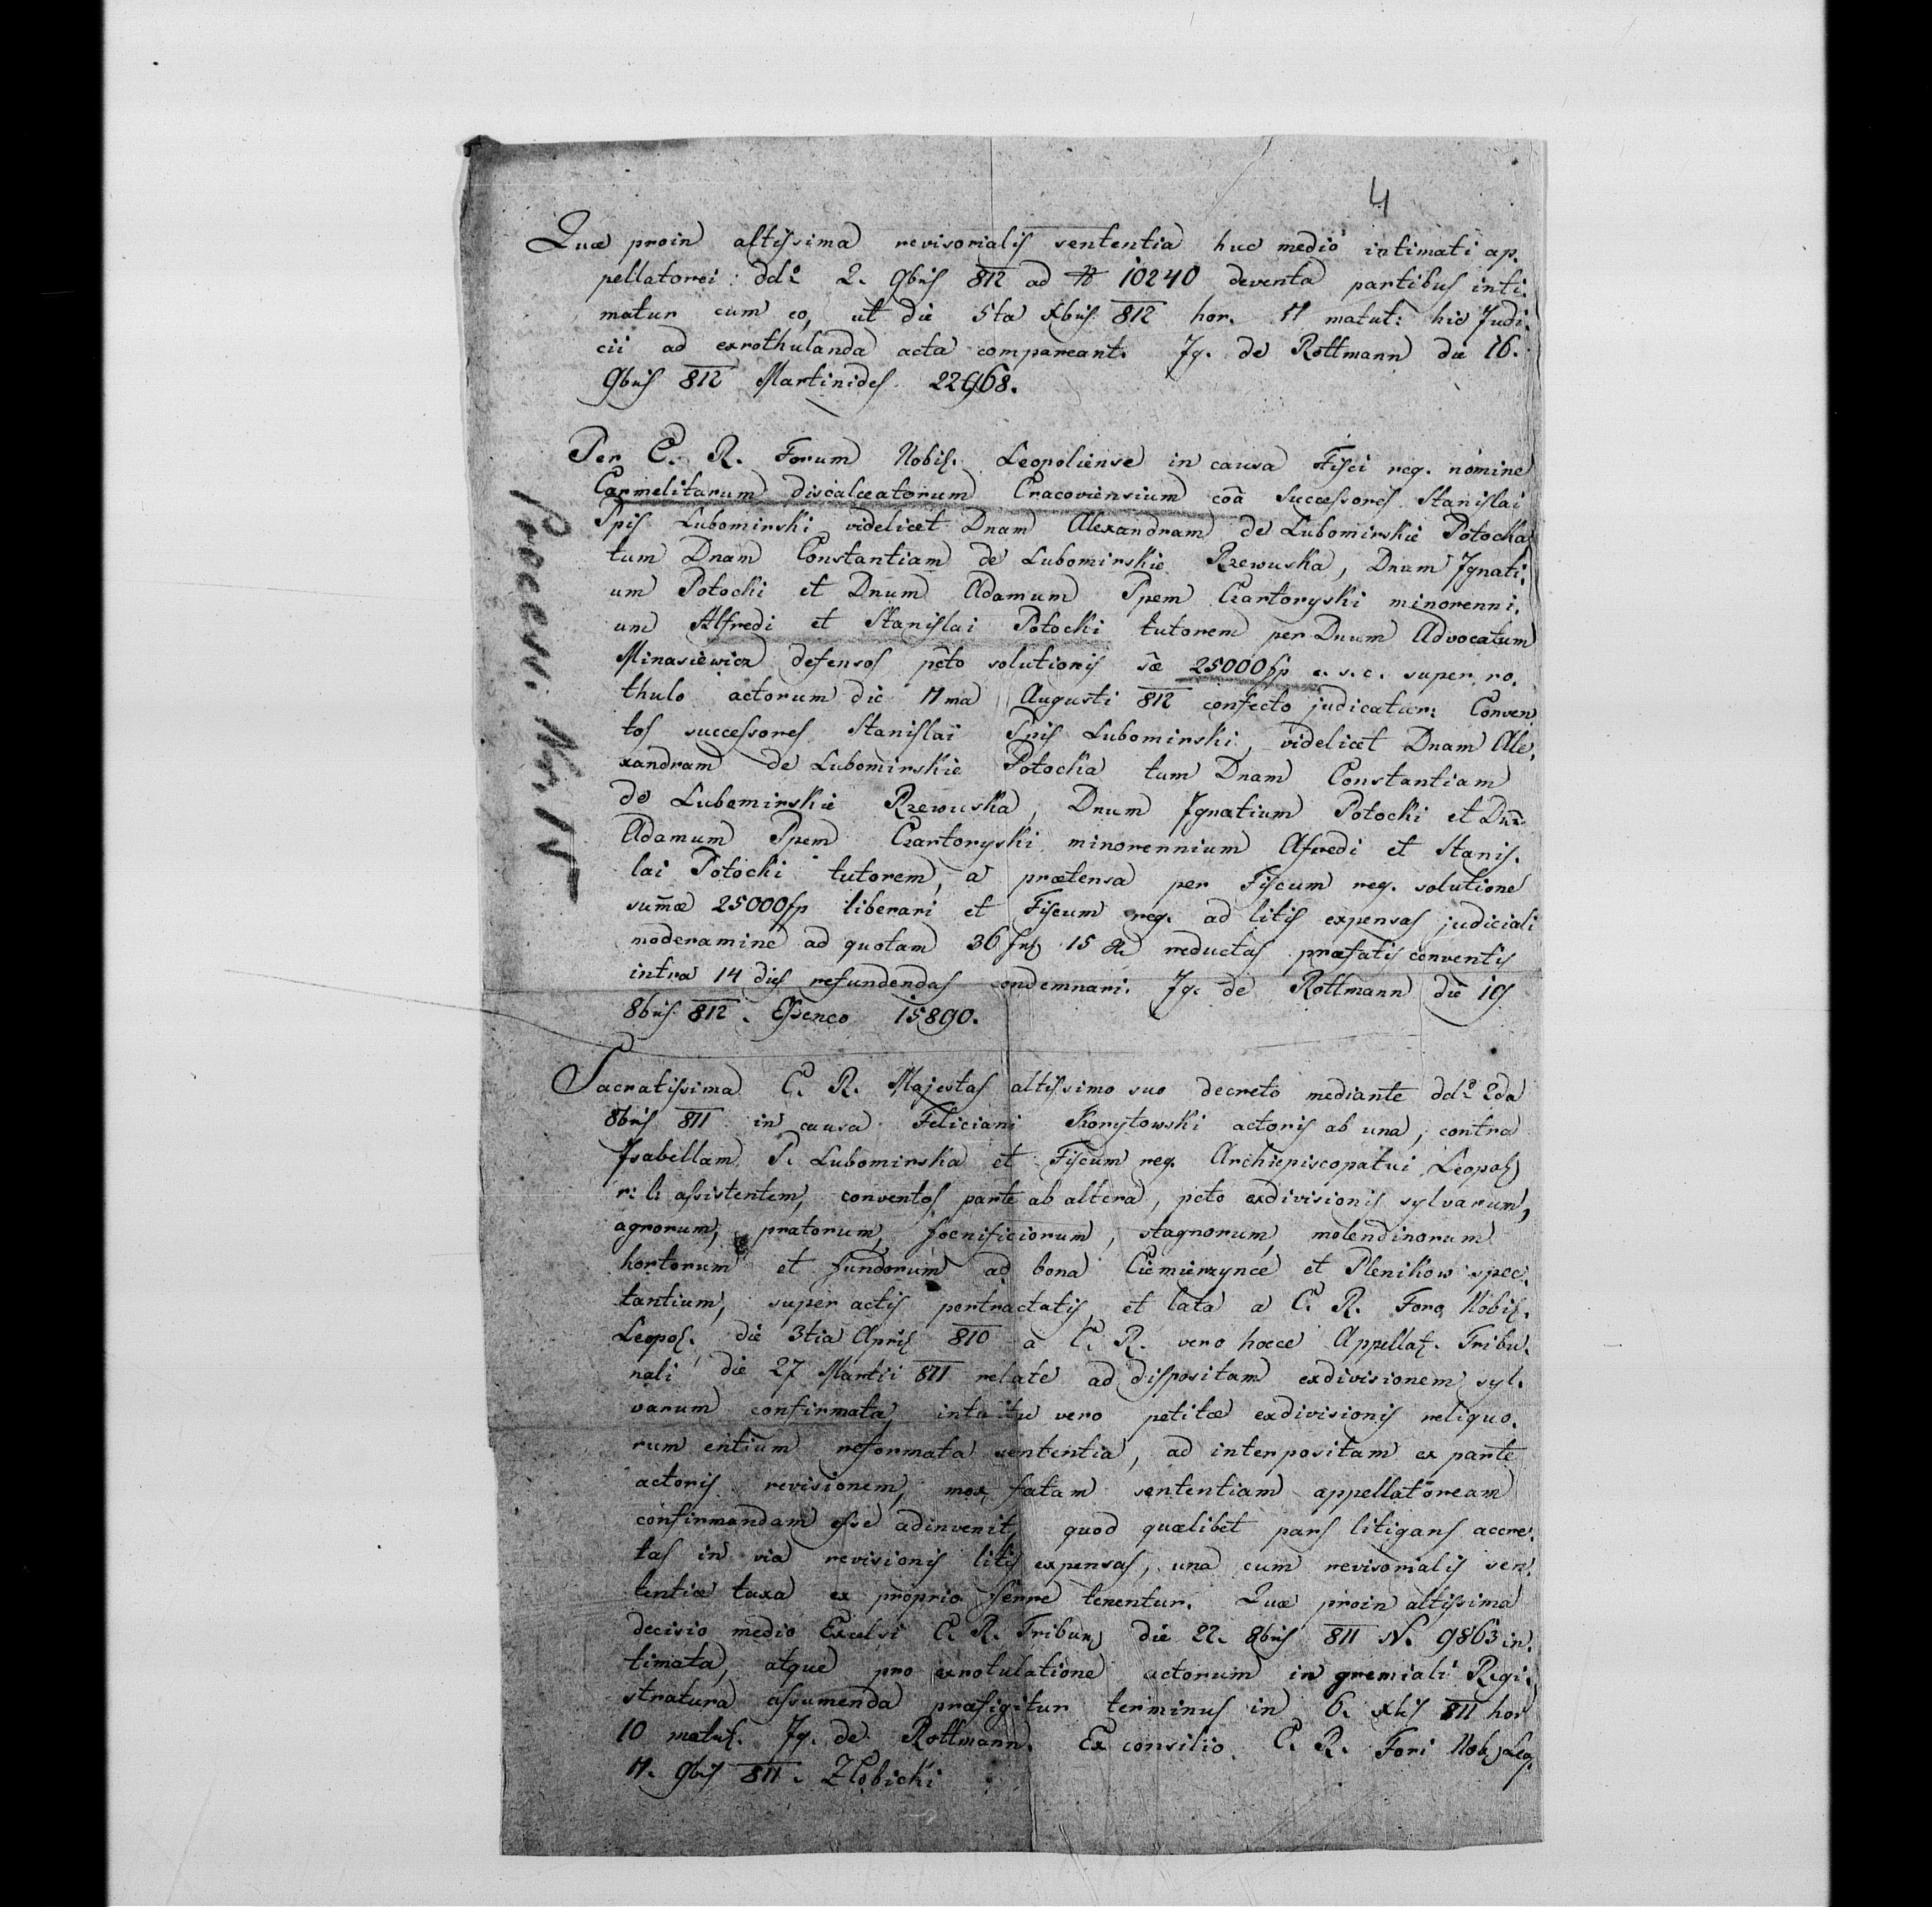 4
Quæ proin altissima revisorialis sententia huc medio intimati ap.
pellatorei ddº 2. 9bris 812 ad № 10240 deventa partibus inti.
matur cum eo, ut die 5ta Xbris 812 hor. 11 matut: hic Judi.
cii ad exrothulanda acta compareant. Jg. de Rottmann die 16.
9bris 812 Martinides 22968.
Per C. R. Forum Nobil. Leopoliense in causa Fisci reg. nomine
Carmelitarum discalceatorum Cracoviensium coa Successores Stanislai
Ppis Lubomirski videlicet Dnam Alexandram de Lubomirskie Potocka
tum Dnam Constantiam de Lubomirskie Rzewuska, Dnum Ignati.
um Potocki et Dnum Adamum Ppem Czartoryski minorenni.
um Alfredi et Stanislai Potocki tutorem per Dnum Advocatum
Minasiewicz defensos pcto solutionis sæ 25000 fp c. s. c. super ro.
thulo actorum die 11ma Augusti 812 confecto judicatur: Conven
tos successores Stanislai Ppis Lubomirski, videlicet Dnam Ale.
xandram de Lubomirskie Potocka tum Dnam Constantiam
de Lubomirskie Rzewuska, Dnum Ignatium Potocki et Dnum
Adamum Ppem Czartoryski minorennium Afredi et Stanis.
lai Potocki tutorem, a prætensa per Fiscum reg. solutione
summæ 25000 fp liberari et Fiscum reg. ad litis expensas judiciali
moderamine ad quotam 36 fr 15 xr reductas præfatis conventis
intra 14 dies refundendas condemnari. Jg. de Rottmann die 19
8bris 812. 15890.
Sacratissima C. R. Majestas altissimo suo decreto mediante ddº 2da
8bris 811 in causa Feliciani Korytowski actoris ab una, contra
Isabellam P. Lubomirska et Fiscum reg. Archiepiscopatui Leopol
r: l: assistentem, conventos parte ab altera, pcto exdivisionis sylvarum,
agrorum, pratorum, foenificiorum, stagnorum, molendinorum
hortorum et fundorum ad bona Ciemierzynce et Plenikow spec.
tantium, super actis pertractatis, et lata a C. R. Foro Nobil.
Leopol. die 3tia April 810 a C. R. vero hocce Appellat. Tribu.
nali die 27 Martii 811 relate ad dispositam exdivisionem syl.
varum confirmata, intuitu vero petitæ exdivisionis reliquo.
rum entium reformata sententia, ad interpositam ex parte
actoris revisionem, mox fatam sententiam appellatoream
confirmandam esse adinvenit, quod quælibet pars litigans accre.
tas in via revisionis litis expensas, una cum revisorialis sen.
tentiæ taxa ex proprio ferre tenentur. Quæ proin altissima
decisio medio Excelsi C. R. Tribun die 22. 8bris 811 N. 9863 in.
timata, atque pro exrotulatione actorum in gremiali Regi.
stratura assumenda præfigitur terminus in 6. xbris 811 hor
10 matut. Jg. de Rottmann. Ex consilio C. R. Fori Nob. Leop.
11. 9bris 811. Zlobicki
Process. Nr. 15